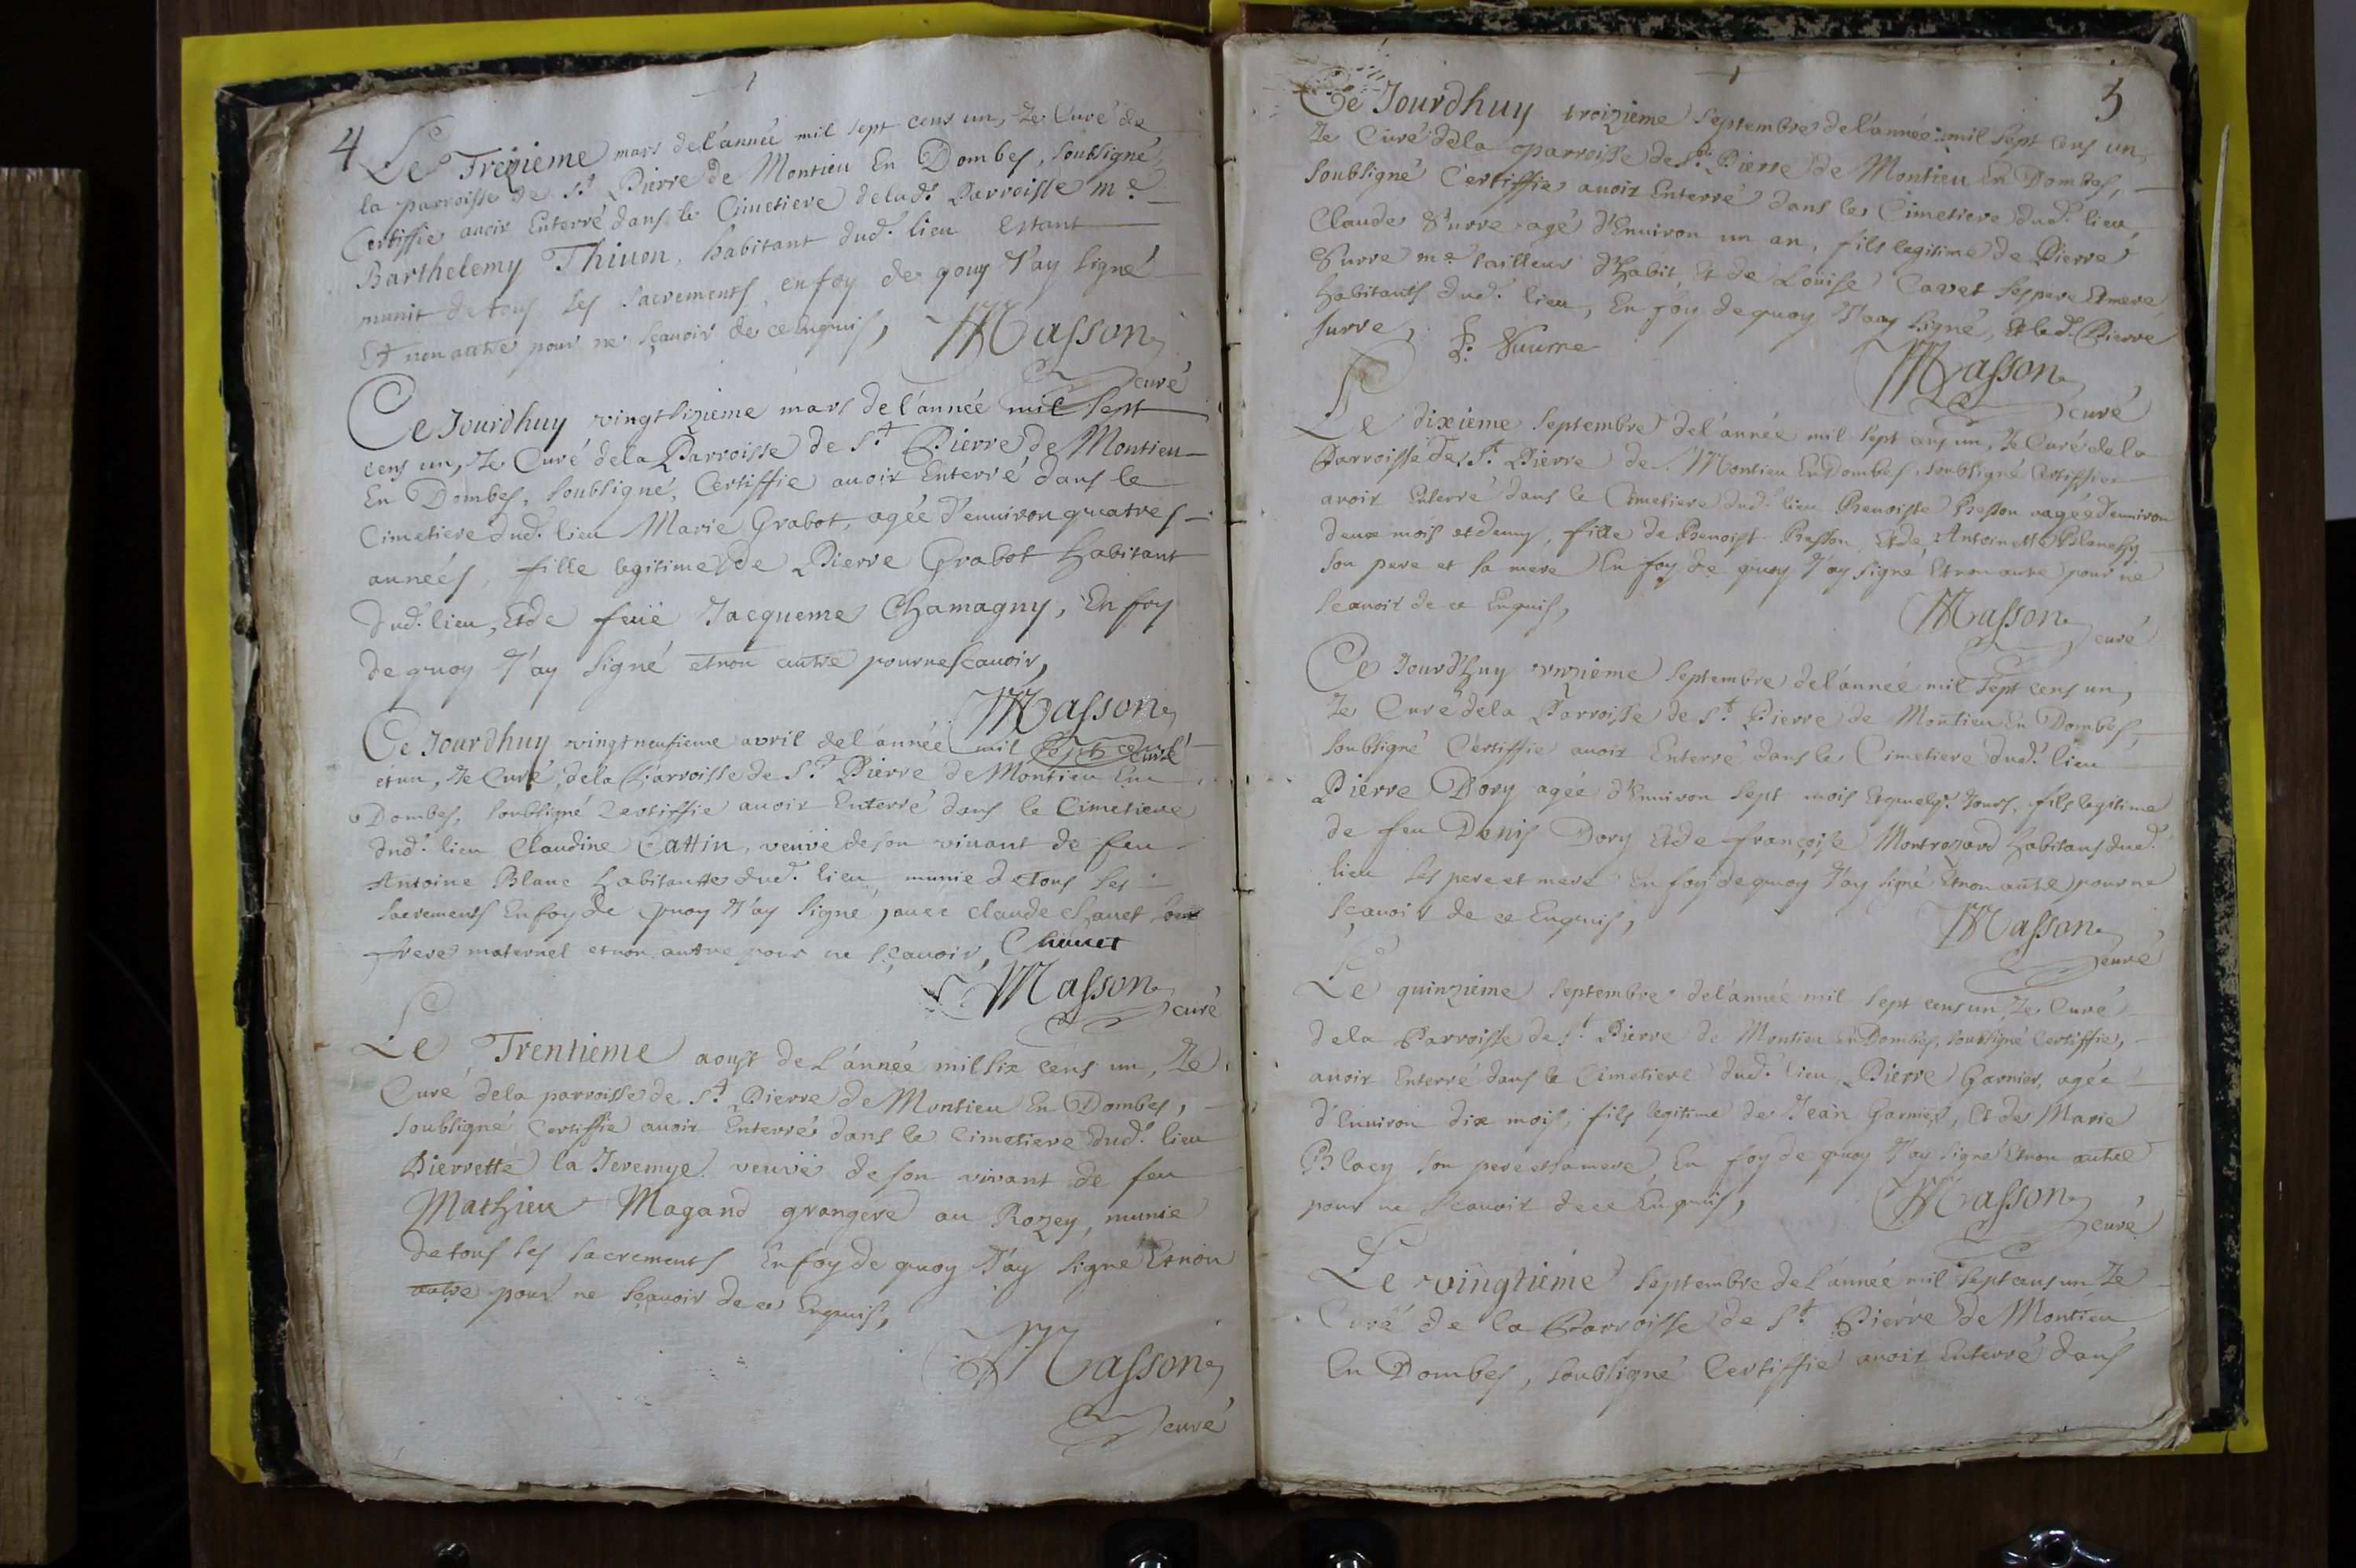 4
Le Trezieme mars de l'année mil sept cens un, Je Curé de
la parroisse de St Pierre de Montieu En Dombes, soubsigné
Certiffie avoir Enterré dans le Cimetiere de lad. Parroisse me
Barthelemy Thiuon, habitant dud. lieu Estant
munit de tous les sacrements, en foy de quoy J'ay signé
Et non autre pour ne sçauoir de ce Enquis, Masson
curé
Ce Jourdhuy vingt sizieme mars de l'année mil sept
cens un, Je Curé de la Parroisse de St Pierre de Montieu
En Dombes, soubsigné, Certiffie auoir Enterré dans le
Cimetiere dud. lieu Marie Grabot, agée d'enuiron quatres
années, fille legitime de Pierre Grabot habitant
dud. lieu, Et de feüe Jacqueme Chamagny, En foy
de quoy J'ay signé et non autre pour ne scauoir,
Masson
curé
Ce Jourdhuy vingt neufieme avril de l'année mil sept cens
et un, Je Curé, de la Parroisse de St Pierre de Montieu En
Dombes, soubsigné Certiffie auoir Enterré dans le Cimetiere
dud. lieu Claudine Cattin, veuve de son vivant de feu
Antoine Blanc habitante dud. lieu, munie de tous les
sacrements En foy de quoy J'ay signé, auec claude Chauet son
frere maternel et non autre pour ne sçauoir, Chauet
Masson
curé
Le Trentieme aoust de L'année mil six cens un, Je
Curé de la parroisse de St Pierre de Montieu En Dombes,
soubsigné Certiffie auoir Enterré dans le Cimetiere dud. lieu
Pierrette la Jeremye veuve de son vivant de feu
Mathieu Magand grangere au Rozey, munie
de tous les sacrements En foy de quoy J'ay signé Et non
autre pour ne sçauoir de ce Enquis,
Masson
curé
5
Ce Jourdhuy troizieme Septembre de l'année mil sept cens un,
Je Curé de la parroisse de St Pierre de Montieu En Dombes,
soubsigné Certiffie auoir Enterré dans le Cimetiere dud. lieu,
Claude Surre agé d'Enuiron un an, fils legitime de Pierre
Surre me tailleur d'habit, Et de Loüise Cavet ses pere Et mere
habitants dud. lieu, En foy de quoy J'ay signé, Et led. Pierre
surre, P. Suurre
Masson
curé
Le dixieme Septembre de l'année mil sept cens un, Je Curé de la
Parroisse de St Pierre de Montieu En Dombes, soubsigné Certiffie
auoir Enterré dans le Cimetiere dud. lieu Benoiste Besson agée d'enuiron
deux mois et demy, fille de Benoist Besson, Et de Antoinette
son pere et sa mere En foy de quoy J'ay signé Et non autre pour ne
scauoir de ce Enquis,
Masson
curé
Ce Jourd'huy onzieme Septembre de l'année mil sept cens un,
Je Curé de la Parroisse de St Pierre de Montieu En Dombes,
soubsigné Certiffie auoir Enterré dans le Cimetiere dud. lieu
Pierre Dory agée d'Enuiron sept mois Et quelq. Jours, fils legitime
de feu Denis Dory Et de françoise Montrozard habitans dud.
lieu ses pere et mere En foy de quoy J'ay signé Et non autre pour ne
sçauoir de ce Enquis,
Masson
curé
Le quinzieme Septembre de l'année mil sept cens un, Je Curé
de la Parroisse de St Pierre de Montieu En Dombes, soubsigné Certiffie,
auoir Enterré dans le Cimetiere dud. lieu Pierre Garnier, agée
d'Enuiron dix mois, fils legitime de Jean Garnier, Et de Marie
Blacy son pere et sa mere, En foy de quoy J'ay signé Et non autre
pour ne scauoir de ce Enquis,
Masson
curé
Le vingtieme Septembre de L'année mil sept cens un Je
Curé de la Parroisse de St Pierre de Montieu
En Dombes, soubsigné Certiffie auoir Enterré dans